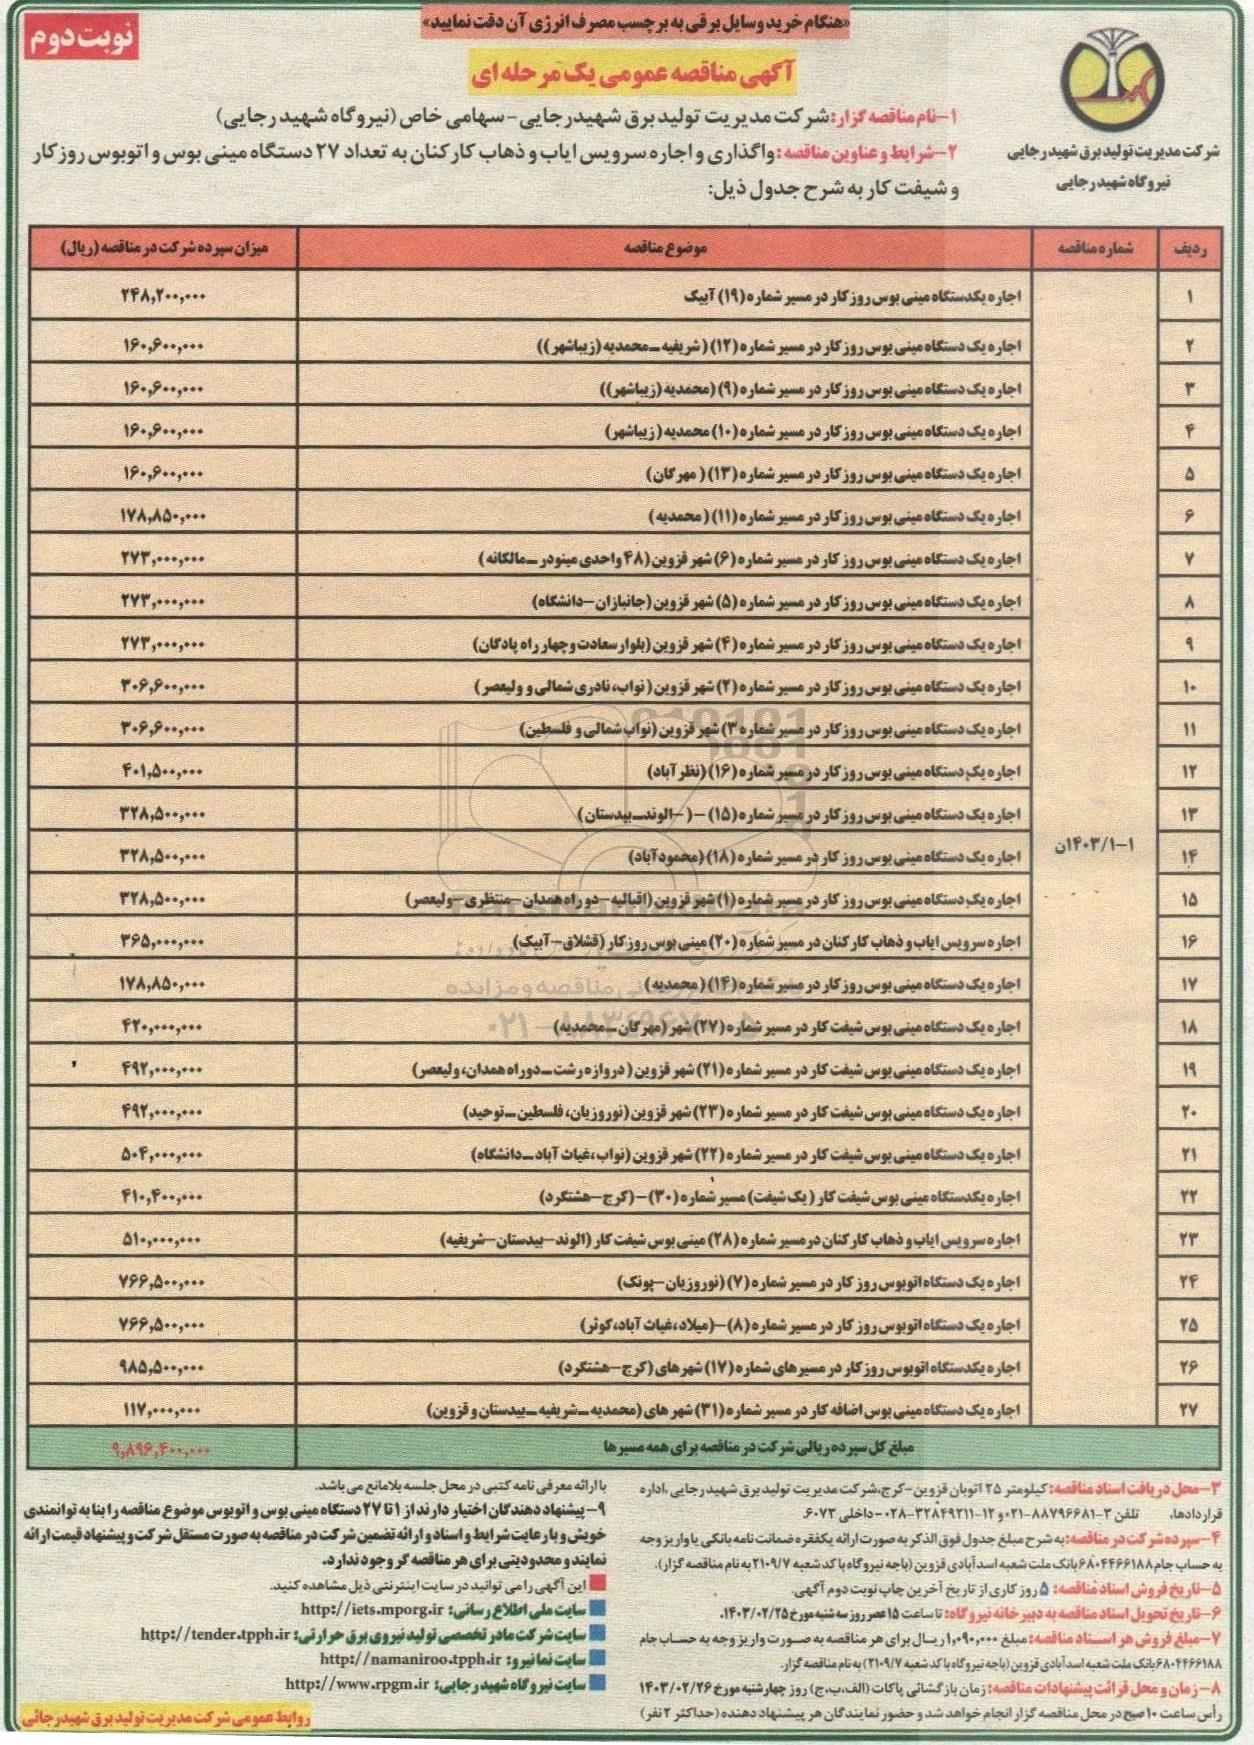 «هنگام خرید وسایل برقی به برچسب مصرف انرژی آن دقت نمایید»
نوبت دوم
آگهی مناقصه عمومی یک مرحله ای
شرکت مدیریت تولید برق شهید رجایی
نیروگاه شهید رجایی
۱-نام مناقصه گزار: شرکت مدیریت تولید برق شهید رجایی - سهامی خاص (نیروگاه شهید رجایی)
۲-شرایط و عناوین مناقصه: واگذاری و اجاره سرویس ایاب و ذهاب کارکنان به تعداد ۲۷ دستگاه مینی بوس و اتوبوس روز کار
و شیفت کار به شرح جدول ذیل:
ردیف شماره مناقصه موضوع مناقصه میزان سپرده شرکت در مناقصه (ریال)
۱ اجاره یکدستگاه مینی بوس روز کار در مسیر شماره (۱۹) آبیک ۲۴۸,۲۰۰,۰۰۰
۲ اجاره یک دستگاه مینی بوس روز کار در مسیر شماره (۱۲) ( شریفیه ـ محمدیه (زیباشهر)) ۱۶۰,۶۰۰,۰۰۰
۳ اجاره یک دستگاه مینی بوس روز کار در مسیر شماره (۹) (محمدیه (زیباشهر)) ۱۶۰,۶۰۰,۰۰۰
۴ اجاره یک دستگاه مینی بوس روز کار در مسیر شماره (۱۰) محمدیه (زیباشهر) ۱۶۰,۶۰۰,۰۰۰
۵ اجاره یک دستگاه مینی بوس روز کار در مسیر شماره (۱۳) ( مهرگان) ۱۶۰,۶۰۰,۰۰۰
۶ اجاره یک دستگاه مینی بوس روز کار در مسیر شماره (۱۱) ( محمدیه) ۱۷۸,۸۵۰,۰۰۰
۷ اجاره یک دستگاه مینی بوس روز کار در مسیر شماره (۶) شهر قزوین (۴۸ واحدی مینودر ـ مالکانه) ۲۷۳,۰۰۰,۰۰۰
۸ اجاره یک دستگاه مینی بوس روز کار در مسیر شماره (۵) شهر قزوین (جانبازان-دانشگاه) ۲۷۳,۰۰۰,۰۰۰
۹ اجاره یک دستگاه مینی بوس روز کار در مسیر شماره (۴) شهر قزوین (بلوار سعادت و چهار راه پادگان) ۲۷۳,۰۰۰,۰۰۰
۱۰ اجاره یک دستگاه مینی بوس روز کار در مسیر شماره (۲) شهر قزوین ( نواب، نادری شمالی و ولیعصر) ۳۰۶,۶۰۰,۰۰۰
۱۱ اجاره یک دستگاه مینی بوس روز کار در مسیر شماره ۳) شهر قزوین (نواب شمالی و فلسطین) ۳۰۶,۶۰۰,۰۰۰
۱۲ اجاره یک دستگاه مینی بوس روز کار در مسیر شماره (۱۶) (نظر آباد) ۴۰۱,۵۰۰,۰۰۰
۱۳ اجاره یک دستگاه مینی بوس روز کار در مسیر شماره (۱۵) - ( -الوند ـ بیدستان) ۳۲۸,۵۰۰,۰۰۰
۱-۱۴۰۳/۱ن
۱۴ اجاره یک دستگاه مینی بوس روز کار در مسیر شماره (۱۸) (محمودآباد) ۳۲۸,۵۰۰,۰۰۰
۱۵ اجاره یک دستگاه مینی بوس روز کار در مسیر شماره (۱) شهر قزوین (اقبالیه- دو راه همدان-منتظری-ولیعصر) ۳۲۸,۵۰۰,۰۰۰
۱۶ اجاره سرویس ایاب و ذهاب کارکنان در مسیر شماره (۲۰) مینی بوس روز کار (قشلاق-آبیک) ۳۶۵,۰۰۰,۰۰۰
۱۷ اجاره یک دستگاه مینی بوس روز کار در مسیر شماره (۱۴) ( محمدیه) ۱۷۸,۸۵۰,۰۰۰
۱۸ اجاره یک دستگاه مینی بوس شیفت کار در مسیر شماره (۲۷) شهر (مهرگان ـ محمدیه) ۴۲۰,۰۰۰,۰۰۰
۱۹ اجاره یک دستگاه مینی بوس شیفت کار در مسیر شماره (۲۱) شهر قزوین ( دروازه رشت ـ دوراه همدان، ولیعصر) ۴۹۲,۰۰۰,۰۰۰
۲۰ اجاره یک دستگاه مینی بوس شیفت کار در مسیر شماره (۲۳) شهر قزوین (نوروزیان، فلسطین ـ توحید) ۴۹۲,۰۰۰,۰۰۰
۲۱ اجاره یک دستگاه مینی بوس شیفت کار در مسیر شماره (۲۲) شهر قزوین (نواب، غیاث آباد ـ دانشگاه) ۵۰۴,۰۰۰,۰۰۰
۲۲ اجاره یکدستگاه مینی بوس شیفت کار ( یک شیفت) مسیر شماره (۳۰) - (کرج-هشتگرد) ۴۱۰,۴۰۰,۰۰۰
۲۳ اجاره سرویس ایاب و ذهاب کارکنان در مسیر شماره (۲۸) مینی بوس شیفت کار (الوند-بیدستان-شریفیه) ۵۱۰,۰۰۰,۰۰۰
۲۴ اجاره یک دستگاه اتوبوس روز کار در مسیر شماره (۷) (نوروزیان-پونک) ۷۶۶,۵۰۰,۰۰۰
۲۵ اجاره یک دستگاه اتوبوس روز کار در مسیر شماره (۸) -(میلاد، غیاث آباد، کوثر) ۷۶۶,۵۰۰,۰۰۰
۲۶ اجاره یکدستگاه اتوبوس روز کار در مسیرهای شماره (۱۷) شهرهای (کرج-هشتگرد) ۹۸۵,۵۰۰,۰۰۰
۲۷ اجاره یک دستگاه مینی بوس اضافه کار در مسیر شماره (۳۱) شهر های (محمدیه ـ شریفیه ـ بیدستان و قزوین) ۱۱۷,۰۰۰,۰۰۰
مبلغ کل سپرده ریالی شرکت در مناقصه برای همه مسیرها ۹,۸۹۶,۴۰۰,۰۰۰
۳-محل دریافت اسناد مناقصه: کیلومتر ۲۵ اتوبان قزوین-کرج، شرکت مدیریت تولید برق شهید رجایی، اداره
قراردادها، تلفن ۳-۸۸۷۹۶۶۸۱-۰۲۱ و ۱۲-۳۲۸۴۹۲۱۱-۰۲۸-داخلی ۶۰۷۳.
۴-سپرده شرکت در مناقصه: به شرح مبلغ جدول فوق الذکر به صورت ارائه یکفقره ضمانت نامه بانکی یا واریز وجه
به حساب جام ۶۸۰۴۴۶۶۱۸۸ بانک ملت شعبه اسدآبادی قزوین (باجه نیروگاه با کد شعبه ۲۱۰۹/۷ به نام مناقصه گزار).
۵-تاریخ فروش اسناد مناقصه: ۵ روز کاری از تاریخ آخرین چاپ نوبت دوم آگهی.
۶-تاریخ تحویل اسناد مناقصه به دبیرخانه نیروگاه: تا ساعت ۱۵ عصر روز سه شنبه مورخ ۱۴۰۳/۰۲/۲۵.
۷-مبلغ فروش هر اسناد مناقصه: مبلغ ۱,۰۹۰,۰۰۰ ریال برای هر مناقصه به صورت واریز وجه به حساب جام
۶۸۰۴۴۶۶۱۸۸ بانک ملت شعبه اسدآبادی قزوین (باجه نیروگاه با کد شعبه ۲۱۰۹/۷) به نام مناقصه گزار.
۸-زمان و محل قرائت پیشنهادات مناقصه: زمان بازگشائی پاکات (الف، ب، ج) روز چهارشنبه مورخ ۱۴۰۳/۰۲/۲۶
رأس ساعت ۱۰ صبح در محل مناقصه گزار انجام خواهد شد و حضور نمایندگان هر پیشنهاد دهنده (حداکثر ۲ نفر)
با ارائه معرفی نامه کتبی در محل جلسه بلامانع می باشد.
۹-پیشنهاد دهندگان اختیار دارند از ۱ تا ۲۷ دستگاه مینی بوس و اتوبوس موضوع مناقصه را بنا به توانمندی
خویش و با رعایت شرایط و اسناد و ارائه تضمین شرکت در مناقصه به صورت مستقل شرکت و پیشنهاد قیمت ارائه
نمایند و محدودیتی برای هر مناقصه گر وجود ندارد.
این آگهی را می توانید در سایت اینترنتی ذیل مشاهده کنید.
سایت ملی اطلاع رسانی: http://iets.mporg.ir
سایت شرکت مادر تخصصی تولید نیروی برق حرارتی: http://tender.tpph.ir
سایت نمانیرو: http://namaniroo.tpph.ir
سایت نیروگاه شهید رجایی: http://www.rpgm.ir
روابط عمومی شرکت مدیریت تولید برق شهید رجائی
ParsNamadData